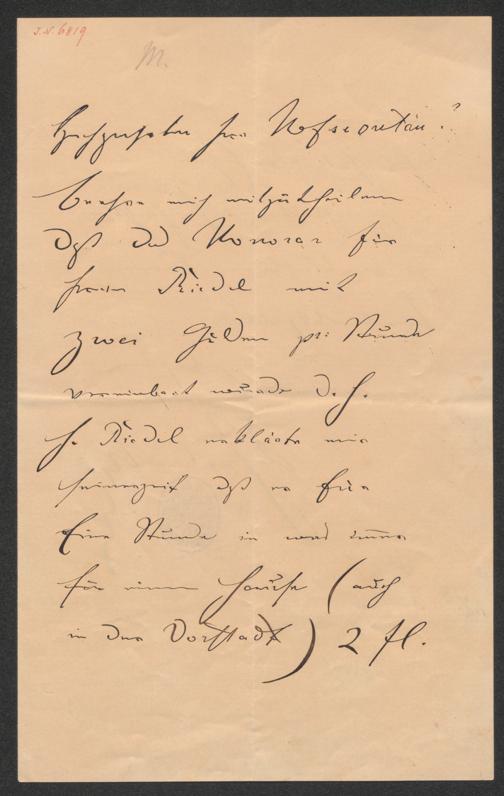 I.N. 6819
M.
Hochgeehrter Herr Hofsecretär!
Beehre mich mitzutheilen
dß das Honorar für
Herrn Riedel mit
zwei Gulden per Stunde
vereinbart wurde d. h.
H. Riedel erklärte mir
seinerzeit dß er für
Eine Stunde in was immer
für einem Hause (auch
in der Vorstadt) 2 fl.